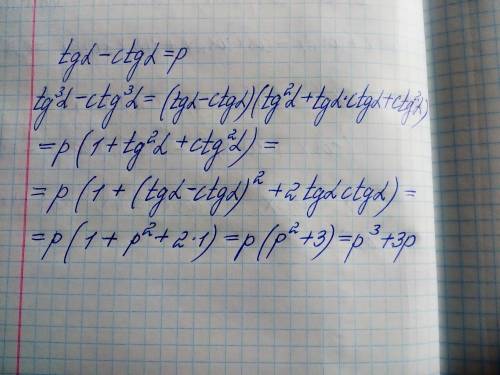 tgα-ctgα=p
tg³α-ctg³α=(tgα-ctgα)(tg²α+tgα·ctgα+ctg²α)
=p(1+tg²α+ctg²α)=
=p(1+(tgα-ctgα)²+2tgαctgα)=
=p(1+p²+2·1)=p(p²+3)=p³+3p